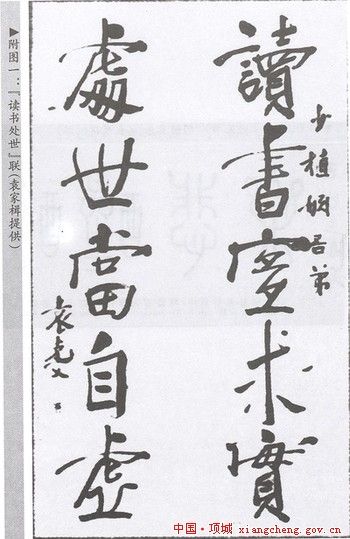 少植吾弟
讀書求實
處世當自虛
袁克文
▶附图一:『读书处世』联(袁家楫提供)
中国·项城 xiangcheng.gov.cn